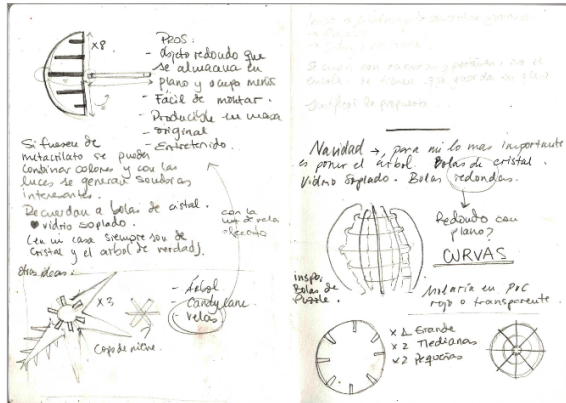 x8
PROS:
- Objeto redondo que
se almacena en
plano y ocupa menos
- Facil de montar.
- Producible en masa
- original
- Entretenido.
Si fuesen de
metacrilato se pueden
combinar colores y con las
luces se generan sombras
interesantes.
Recuerdan a bolas de cristal.
vidrio soplado.
(en mi casa siempre son de
cristal y el arbol de verdad).
con la
luz de vela
otras ideas:
x3
Copo de nieve.
- Árbol
- Candy lane
- velas
Navidad →, para mi lo mas importante
es poner el árbol. Bolas de cristal.
Vidrio Soplado. Bolas redondas.
Redondo con
plano?
CURVAS
inspo:
Bolas de
Puzzle.
Molaría en PVC
rojo o transparente.
x 1 Grande
x 2 Medianas
x 2 Pequeñas